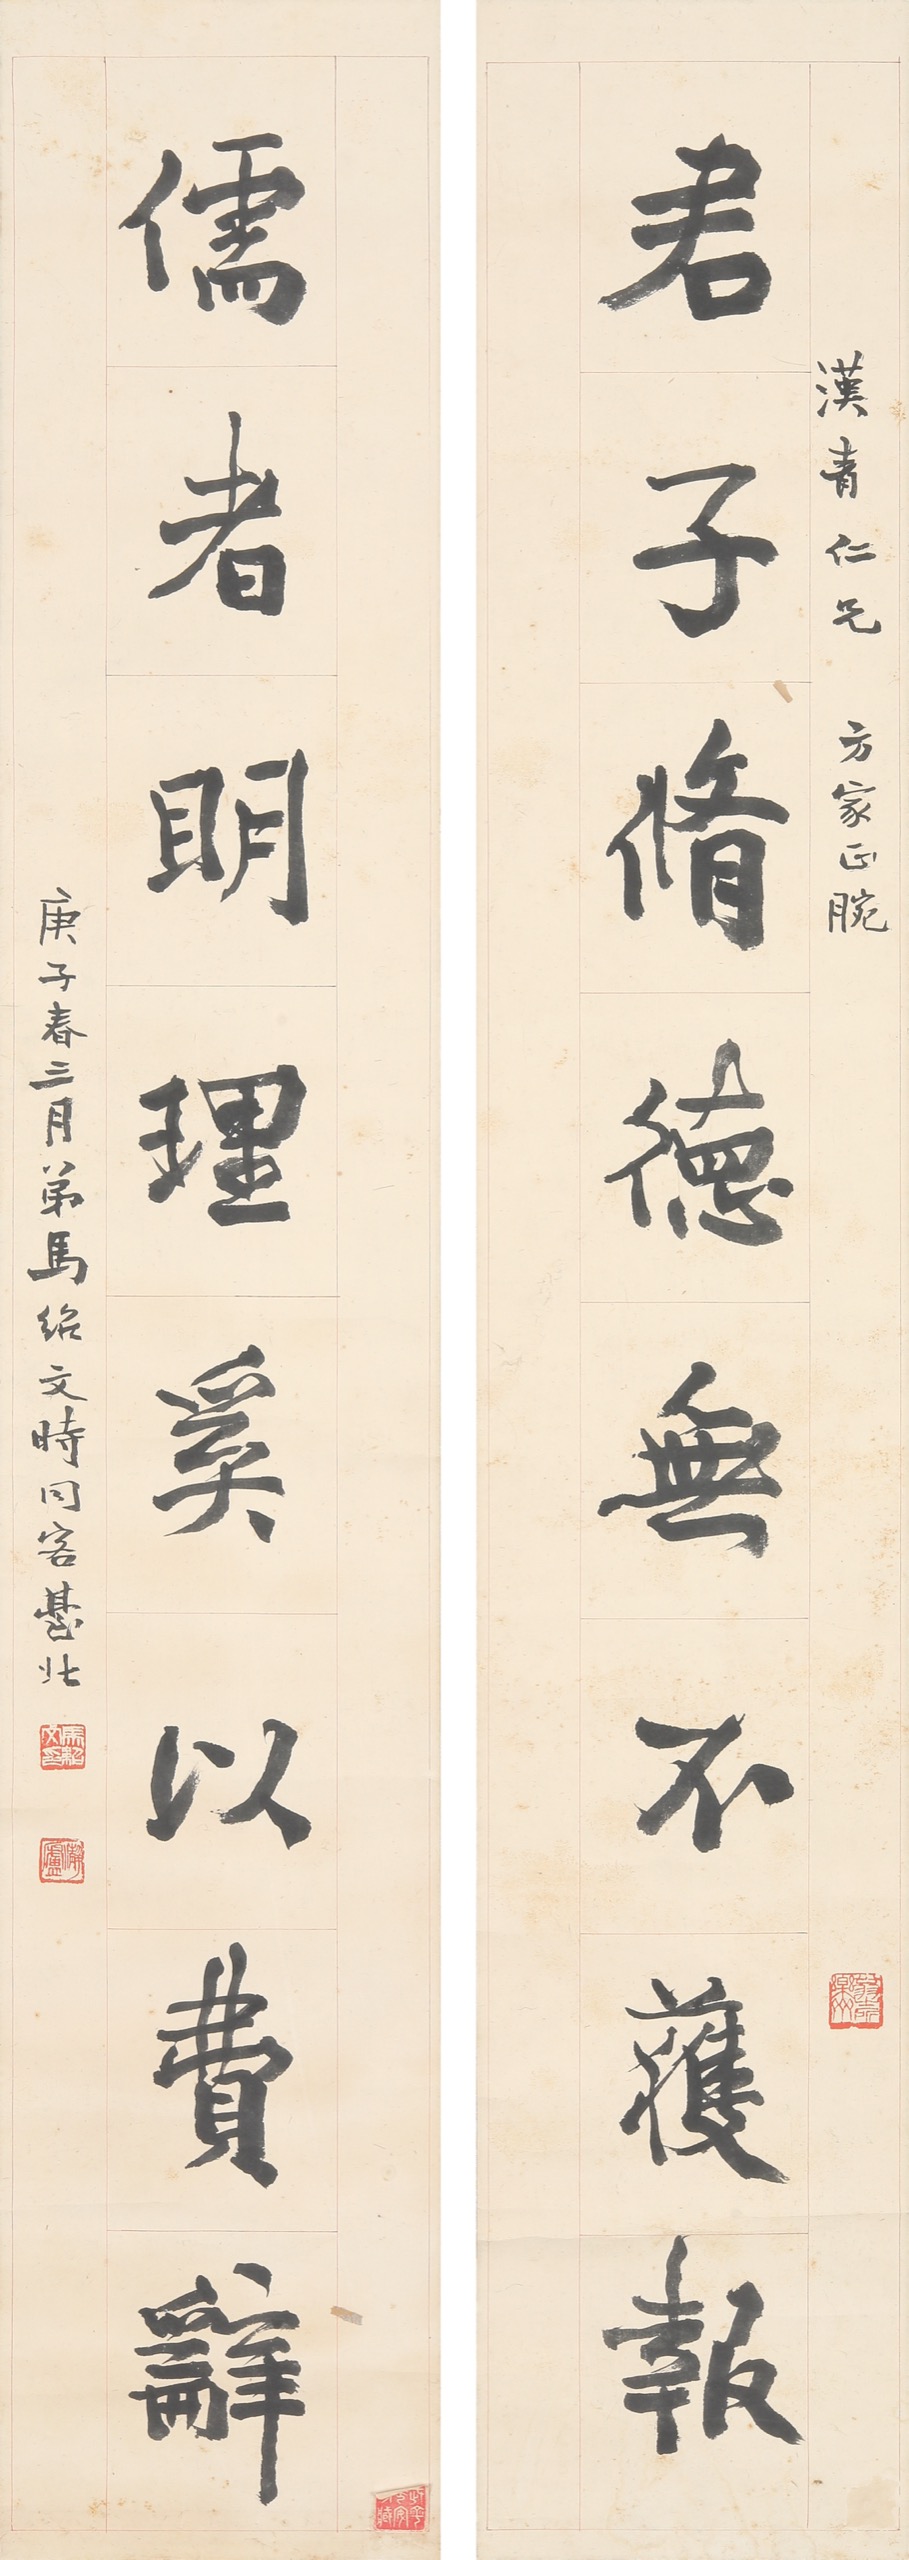 漢青仁兄 方家正腕
君子脩德無不獲報
儒者明理奚以費辭
庚子春三月弟馬紹文時同客臺北
馬紹文印